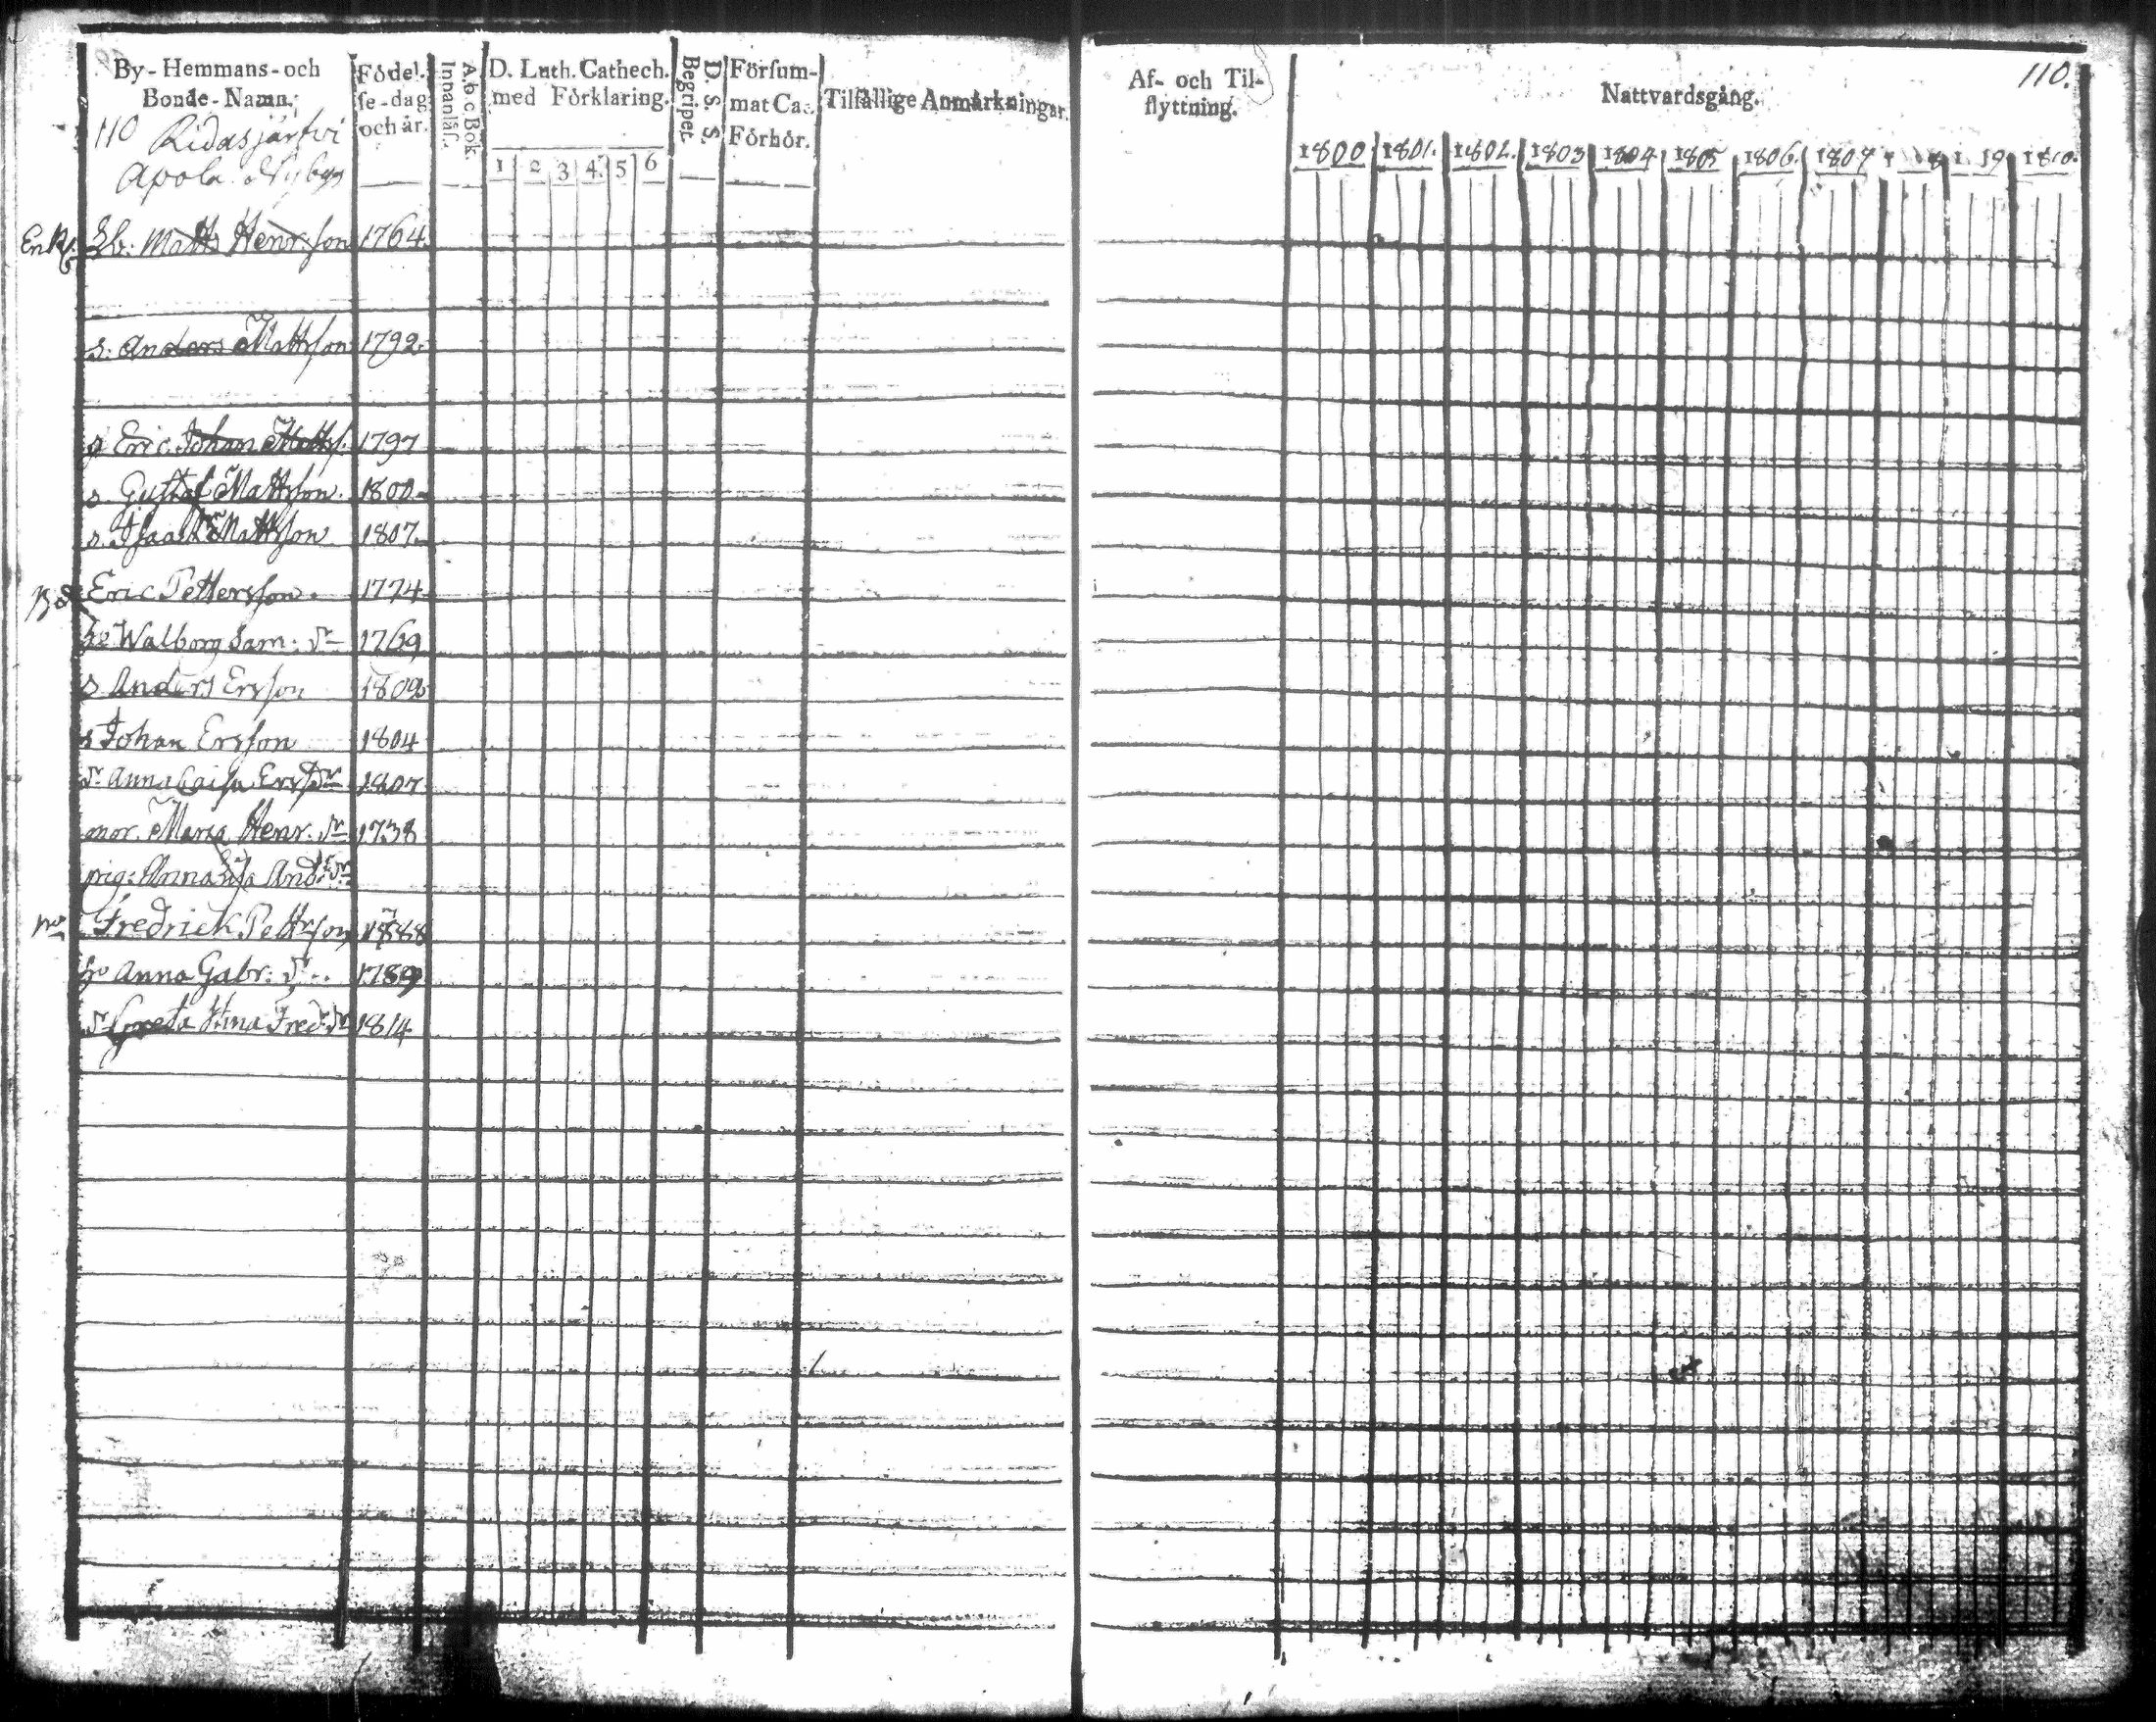 By-Hemmans-och Bonde-Namn.
Födel-se-dag och år.
A. b. c. Bok. Innanläs.
D. Luth. Cathech. med Förklaring.
1 2 3 4 5 6
D. S. S. Begripet.
Försum-mat Ca. Förhör.
Tilfällige Anmärkningar.
Af- och Til-flyttning.
Nattvardsgång.
110.
1800 1801. 1802. 1803 1804 1805 1806. 1807 1 8 1 9 1810.
110 Ridasjärfvi
Apola Nyby
Enkl. Matts Henr.son 1764.
s. Anders Mattsson 1792.
s Eric Johan Matts. 1797
s. Gustaf Mattsson. 1800
s. Isaack Mattsson 1807.
Eric Pettersson. 1774
Walborg Sam: dr 1769
s Anders Ersson 1802
s Johan Ersson 1804
dr Anna Caisa Ers dr 1807
mor. Maria Henr. dr 1738
pig: Anna And: dr
Fredrick Pettrson 1788
Anna Gabr: dr 1789
dr Greta Stina Fred: dr 1814